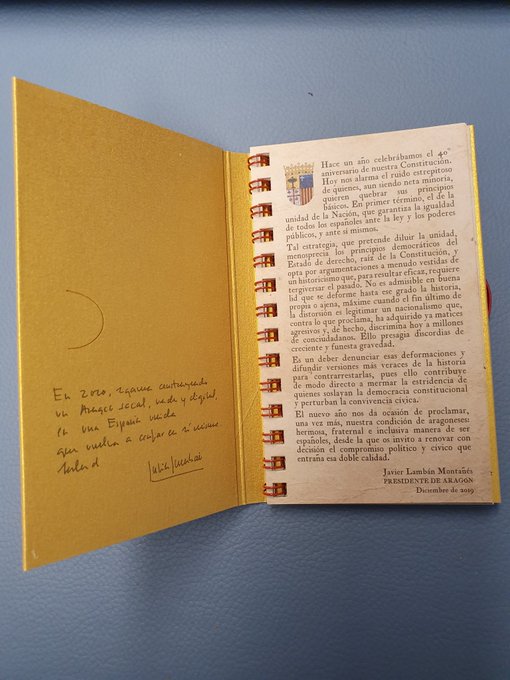 En 2020, sigamos construyendo
un Aragón social, verde y digital,
en una España unida
que vuelva a confiar en sí misma
Hace un año celebrábamos el 40º
aniversario de nuestra Constitución.
Hoy nos alarma el ruido estrepitoso
de quienes, aun siendo neta minoría,
quieren quebrar sus principios
básicos. En primer término, el de la
unidad de la Nación, que garantiza la igualdad
de todos los españoles ante la ley y los poderes
públicos, y ante sí mismos.
Tal estrategia, que pretende diluir la unidad,
menosprecia los principios democráticos del
Estado de derecho, raíz de la Constitución, y
opta por argumentaciones a menudo vestidas de
un historicismo que, para resultar eficaz, requiere
tergiversar el pasado. No es admisible en buena
lid que se deforme hasta ese grado la historia,
propia o ajena, máxime cuando el fin último de
la distorsión es legitimar un nacionalismo que,
contra lo que proclama, ha adquirido ya matices
agresivos y, de hecho, discrimina hoy a millones
de conciudadanos. Ello presagia discordias de
creciente y funesta gravedad.
Es un deber denunciar esas deformaciones y
difundir versiones más veraces de la historia
para contrarrestarlas, pues ello contribuye
de modo directo a mermar la estridencia de
quienes soslayan la democracia constitucional
y perturban la convivencia cívica.
El nuevo año nos da ocasión de proclamar,
una vez más, nuestra condición de aragoneses:
hermosa, fraternal e inclusiva manera de ser
españoles, desde la que os invito a renovar con
decisión el compromiso político y cívico que
entraña esa doble calidad.
Javier Lambán Montañés
PRESIDENTE DE ARAGÓN
Diciembre de 2019